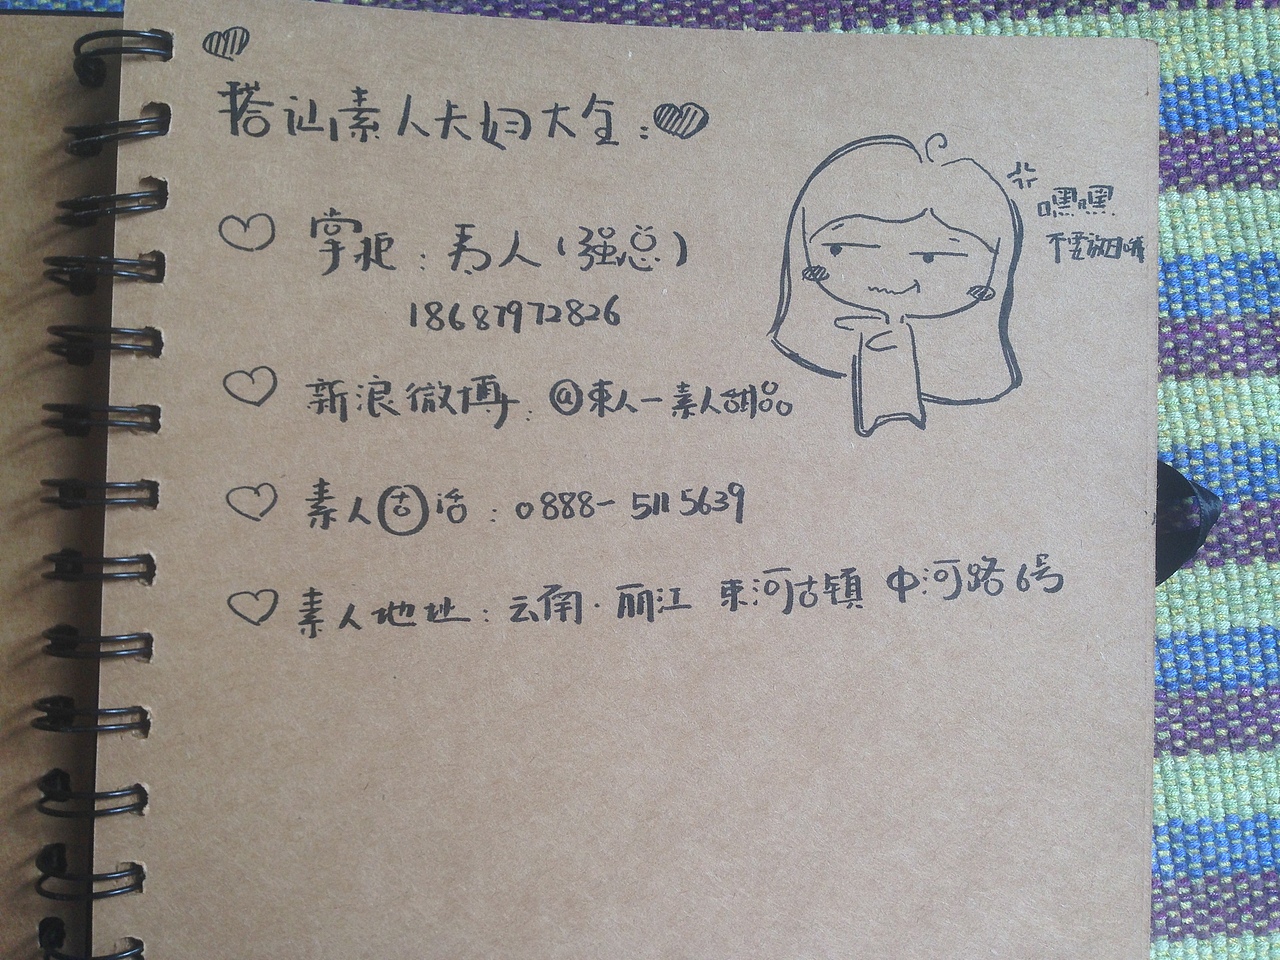 搭讪素人夫妇大全:
掌柜:男人(强总)
18687972826
新浪微博:@束人一素人甜品
素人固话:0888-5115639
素人地址:云南·丽江 束河古镇 中河路6号
嘿嘿
不要放过哦